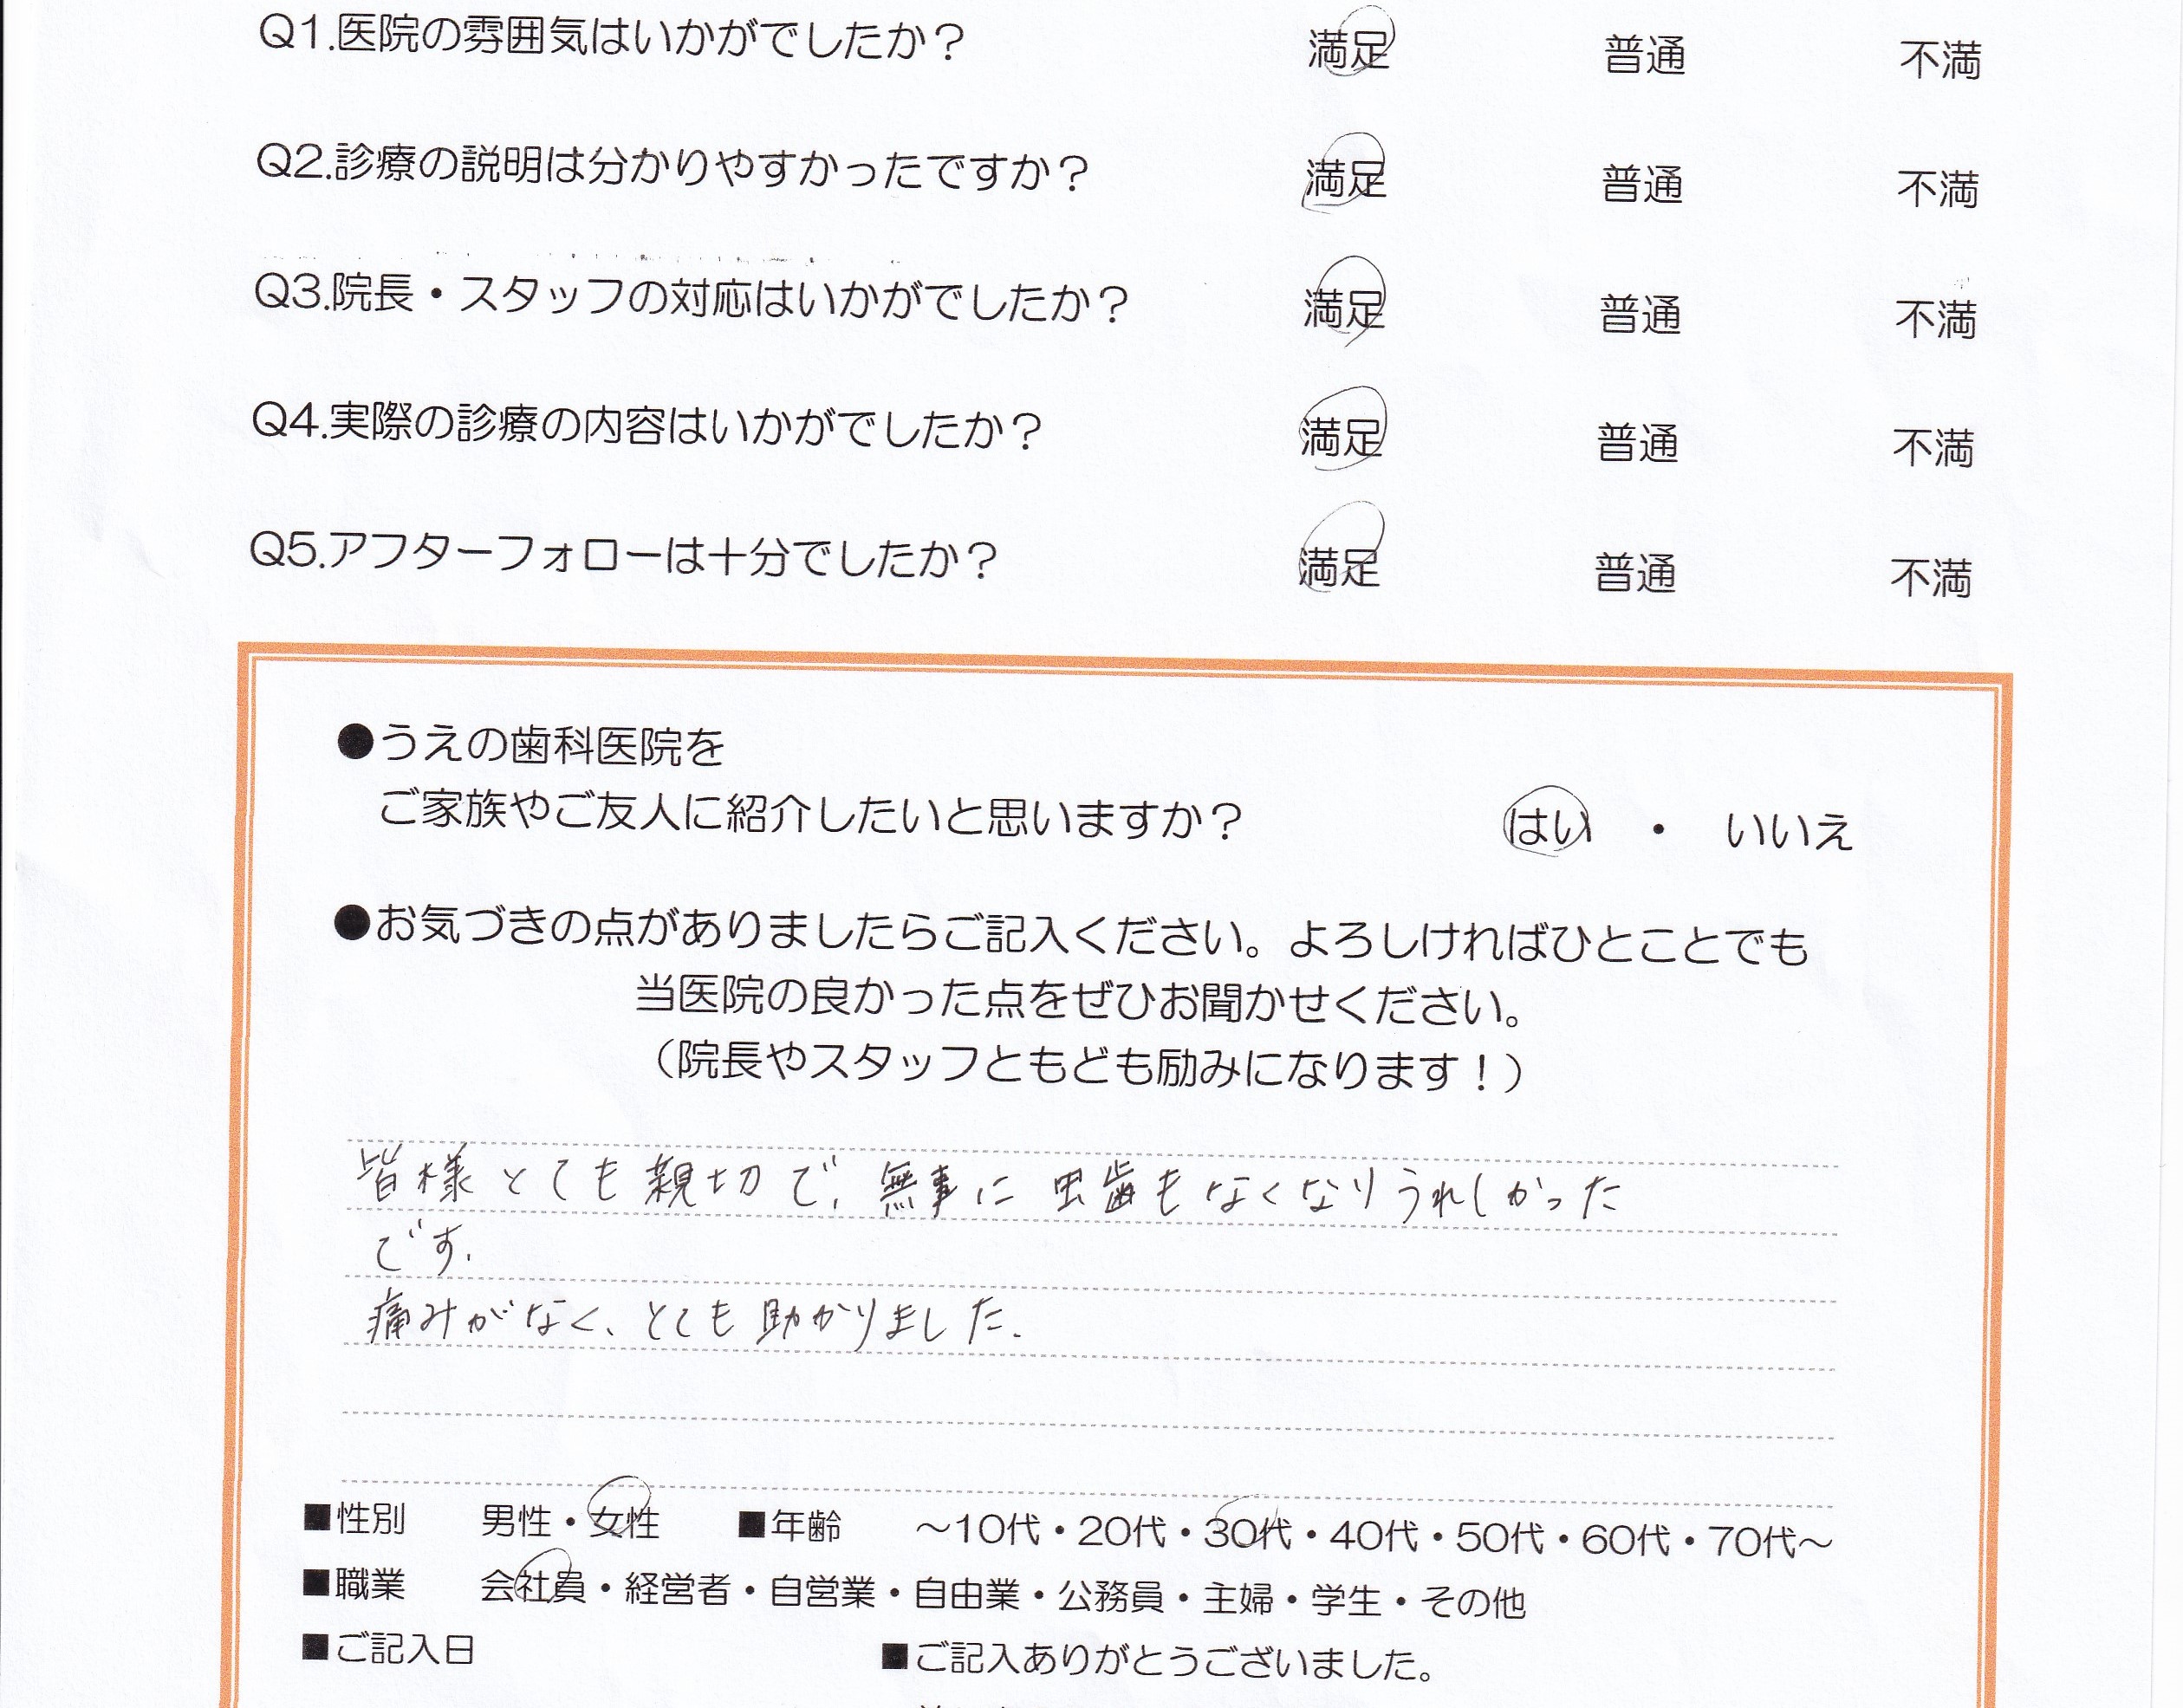 Q1.医院の雰囲気はいかがでしたか？ 満足 普通 不満
Q2.診療の説明は分かりやすかったですか？ 満足 普通 不満
Q3.院長・スタッフの対応はいかがでしたか？ 満足 普通 不満
Q4.実際の診療の内容はいかがでしたか？ 満足 普通 不満
Q5.アフターフォローは十分でしたか？ 満足 普通 不満
●うえの歯科医院を
ご家族やご友人に紹介したいと思いますか？ はい ・ いいえ
●お気づきの点がありましたらご記入ください。よろしければひとことでも
当医院の良かった点をぜひお聞かせください。
（院長やスタッフともども励みになります！）
皆様とても親切で、無事に虫歯もなくなりうれしかった
です。
痛みがなく、とても助かりました。
■性別 男性・女性 ■年齢 〜10代・20代・30代・40代・50代・60代・70代〜
■職業 会社員・経営者・自営業・自由業・公務員・主婦・学生・その他
■ご記入日 ■ご記入ありがとうございました。